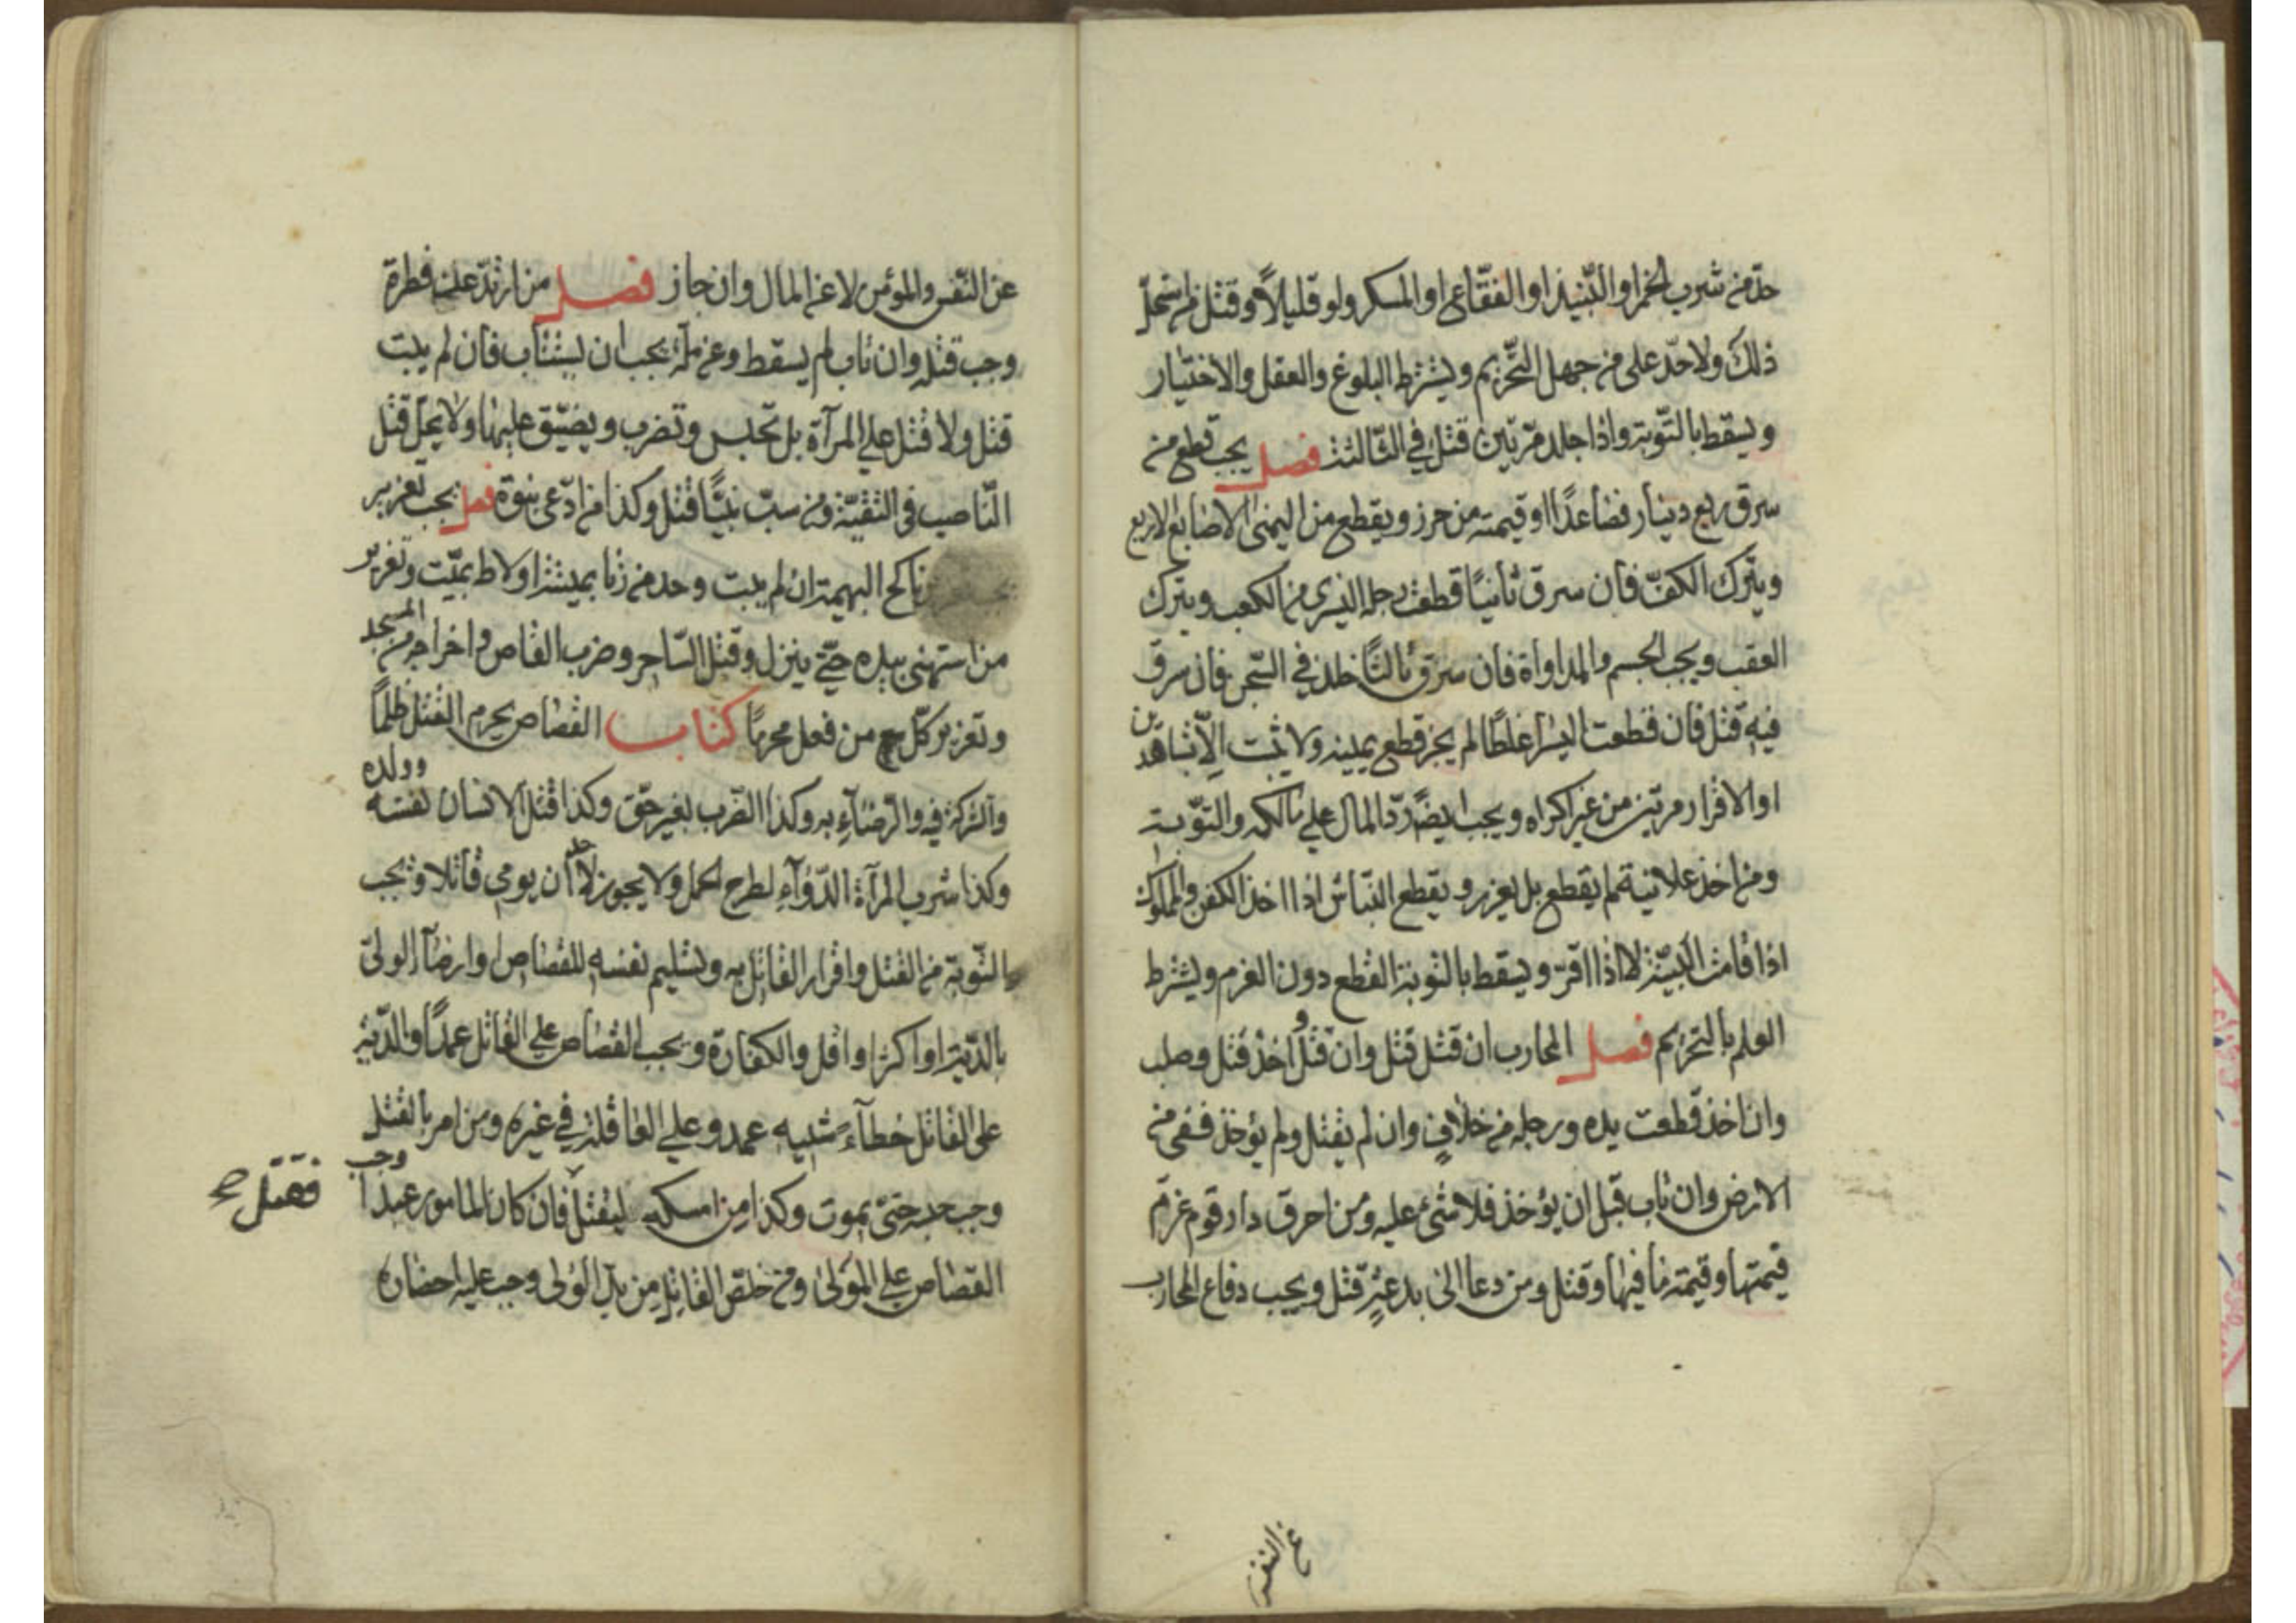 حدّ من شرب الخمر او النّبيذ او الفقّاع او المسكر ولو قليلاً وقتل من استحلّ
ذلك ولا حدّ على من جهل التّحريم ويشترط البلوغ والعقل والاختيار
ويسقط بالتّوبة واذا جلد مرّتين قتل في الثّالثة فصل يجب قطع من
سرق ربع دينار فصاعدًا او قيمته من حرز ويقطع من اليمنى الاصابع الاربع
ويترك الكفّ فان سرق ثانيًا قطعت رجله اليسرى من الكعب ويترك
العقب ويجب الحسم والمداواة فان سرق ثالثًا خلد في السّجن فان سرق
فيه قتل فان قطعت اليسرا غلطًا لم يجز قطع يمينه ولا تثبت الّا بشاهدين
او الاقرار مرتين من غير اكراه ويجب ايضًا ردّ المال على مالكه والتوّبة
ومن اخذ علانية لم يقطع بل يعزر ويقطع النّباش اذا اخذ الكفن والمملوك
اذا قامت البيّنة لا اذا اقرّ ويسقط بالتوبة القطع دون الغرم ويشترط
العلم بالتحريم فصل المحارب ان قتل قتل وان قتل واخذ قتل وصلب
وان اخذ قطعت يده ورجله من خلافٍ وان لم يقتل ولم يؤخذ ففى من
الارض وان تاب قبل ان يؤخذ فلا شئ عليه ومن احرق دار قوم غرم
قيمتها وقيمة ما فيها وقتل ومن دعا الى بدعةٍ قتل ويجب دفاع المحارب
عن النفس
عن النّفس والمؤمن لا عن المال وان جاز فصل من ارتدّ عن فطرة
وجب قتله وان تاب لم يسقط وعن ملّة يجب ان يستتاب فان لم يتب
قتل ولا قتل على المرآة بل تحبس وتضرب ويضيّق عليها ولا يحلّ قتل
النّاصب فى التقيّة ومن سبّ نبيًّا قتل وكذا من ادّعى نبوّة فصل يجب تعزير
ناكح البهيمة ان لم يتب وحد من زنا بميتة او لاط بميّت وتعزير
من استمنى بيده حتّى ينزل وقتل السّاحر وضرب القاص واخراجه من المسجد
وتعزير كلّ من فعل محرمًا كتاب القصاص يحرم القتل ظلمًا
والشركة فيه والرّضاء به وكذا الضّرب بغير حقّ وكذا قتل الانسان نفسه وولده
وكذا شرب المرآة الدّوآء لطرح الحمل ولا يجوز لاحد ان يومى قاتلا وتجب
التّوبة من القتل واقرار القاتل به وتسليم نفسه للقصاص او ارضآء الولىّ
بالدّية او اكثر او اقل والكفارة ويجب القصاص على القاتل عمدًا والدّية
على القاتل خطآء شبيه عمد وعلى العاقلة في غيره ومن امر بالقتل
فقتل صح
وجب حبسه حتى يموت وكذا من امسكه ليقتل فان كان المامور عبدا وجب
القصاص على المولى ومن خلّص القاتل من يد الولى وجب عليه احضاره